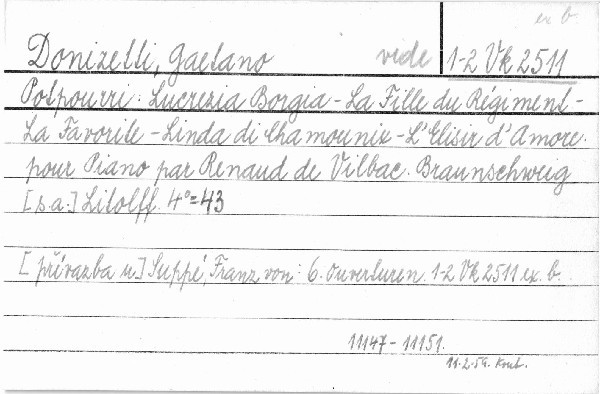 ex b.
Donizetti, Gaetano vide 1-2 Vk 2511
Potpourri: Lucrezia Borgia - La Fille du Régiment -
La Favorite - Linda di Chamounix - L'Elisir d'Amore.
pour Piano par Renaud de Vilbac. Braunschweig
[s.a.] Litolff. 4°=43
[přívazba u] Suppé, Franz von: 6. Ouverturen. 1-2 Vk 2511 ex. b.
11147-11151.
11.2.59.